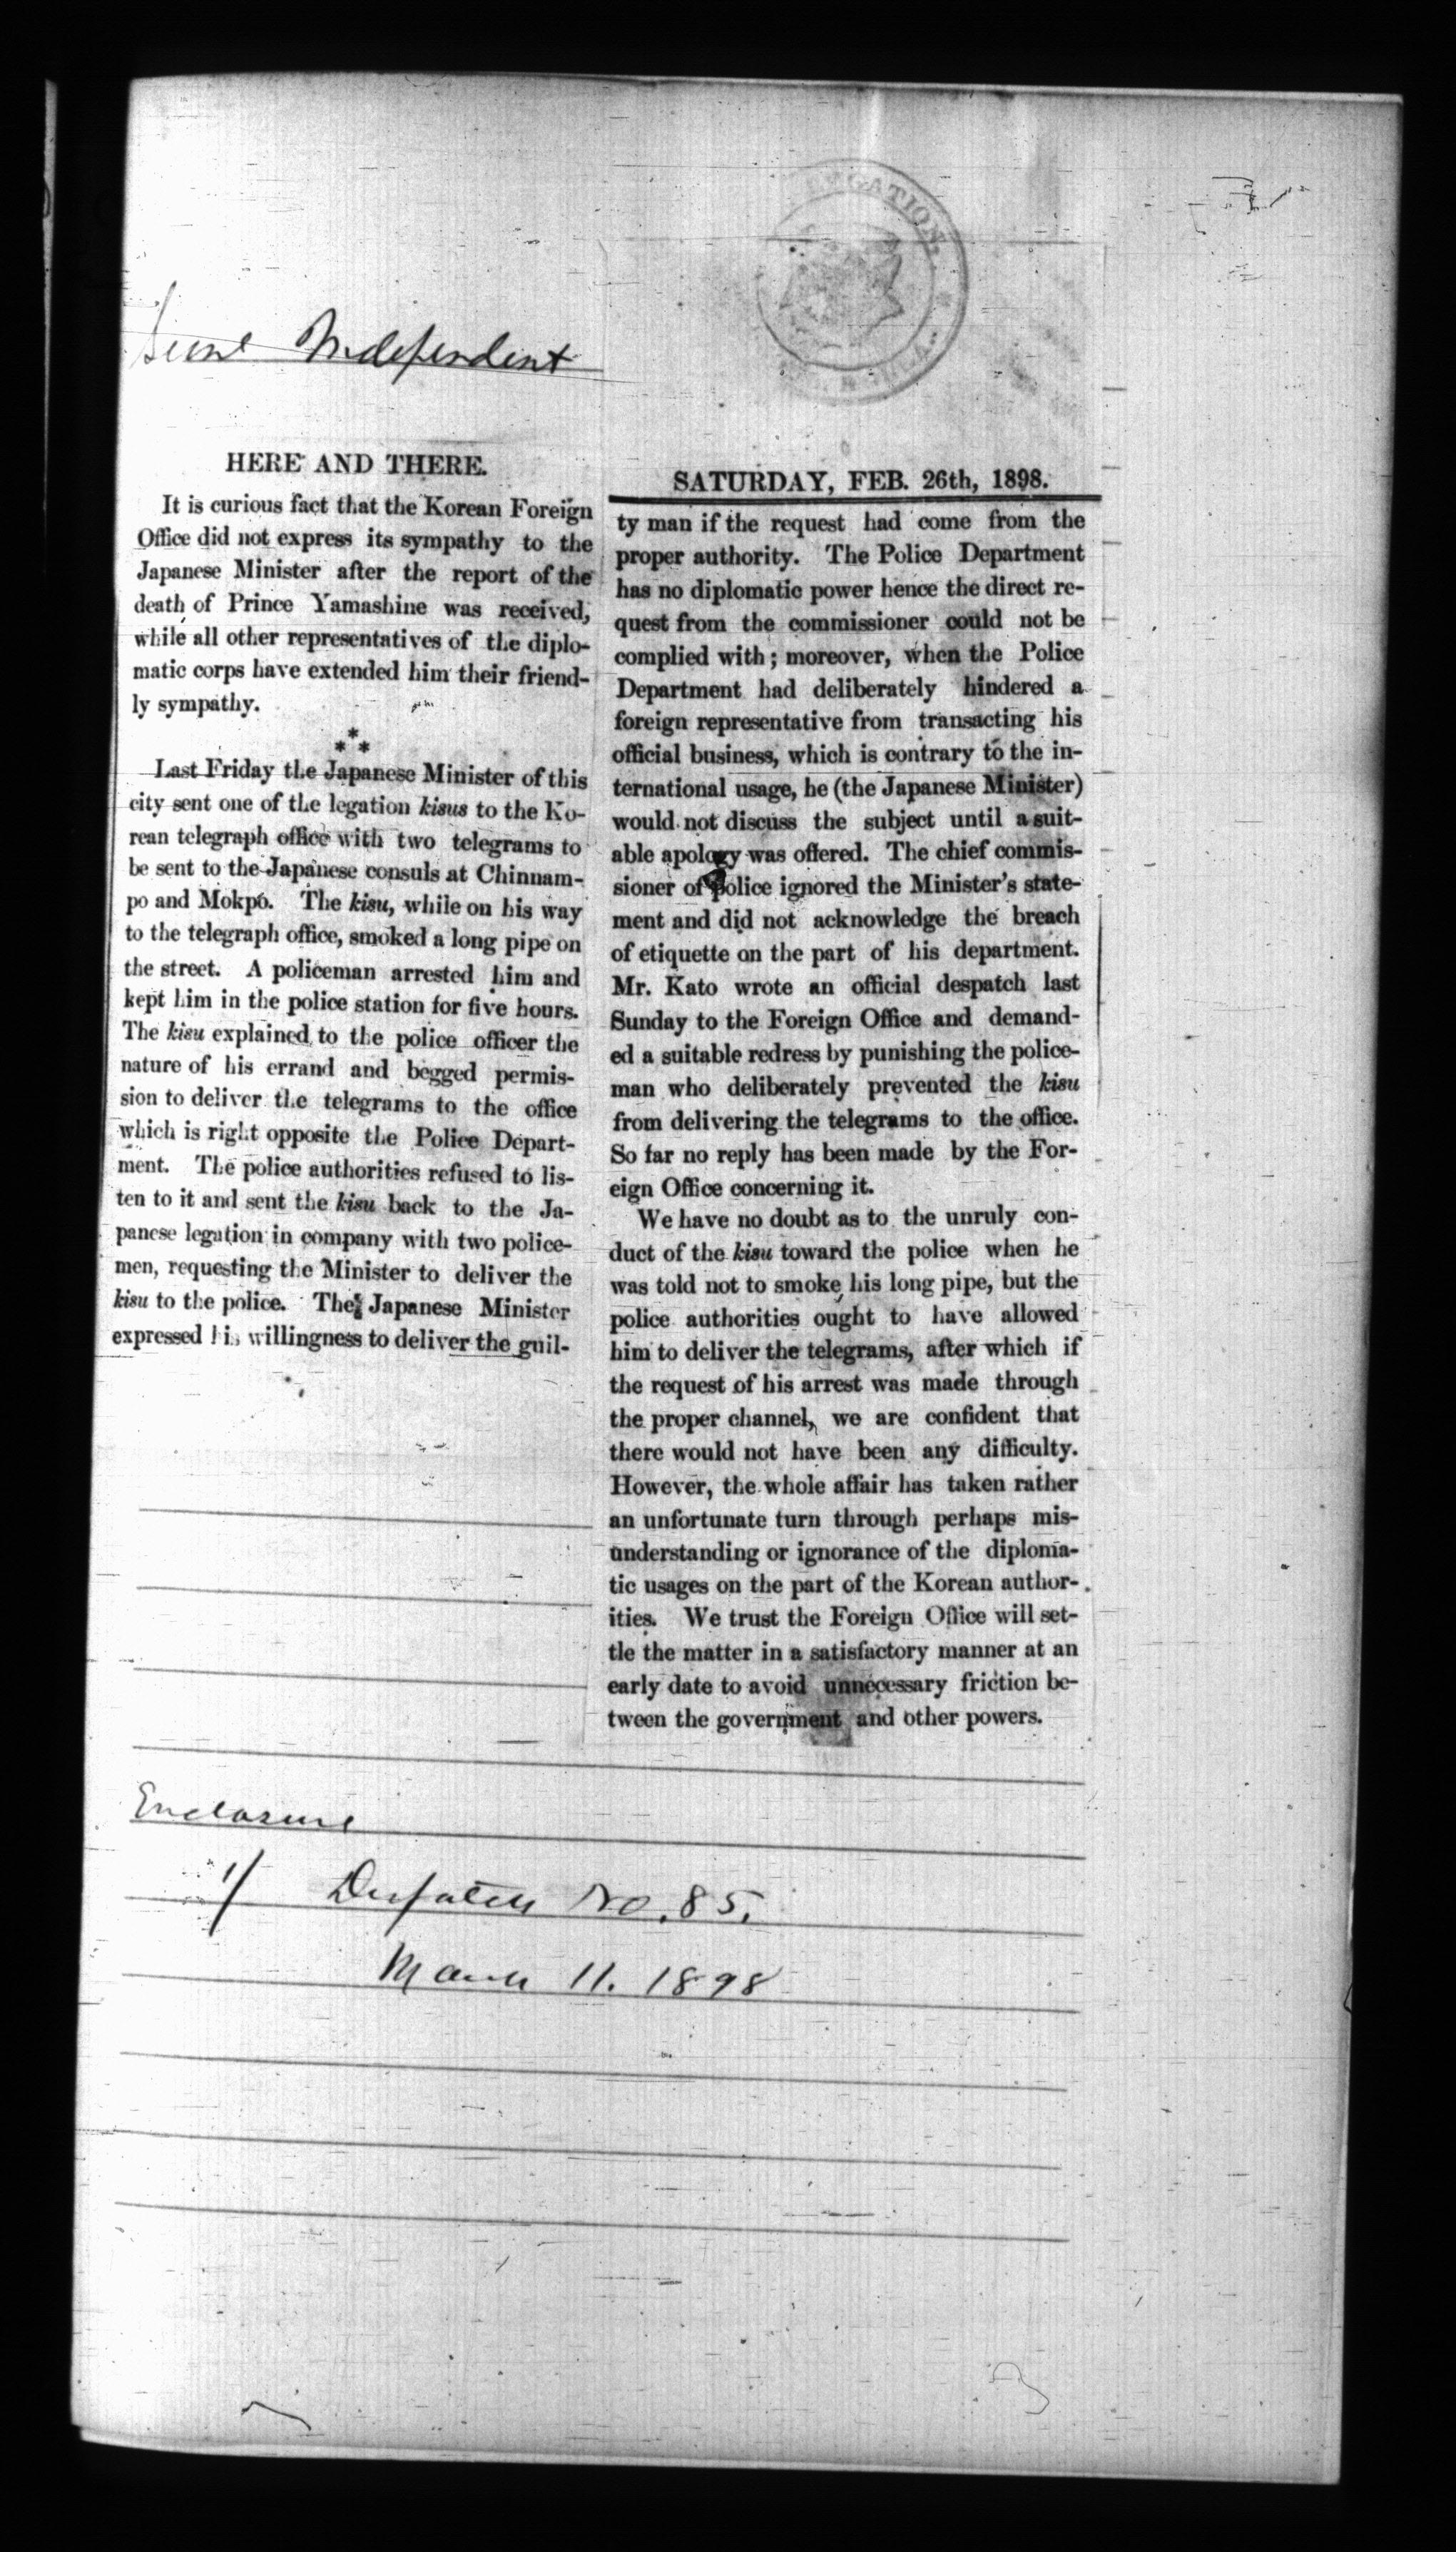 LEGATION
Independent
HERE AND THERE.
It is curious fact that the Korean Foreign
Office did not express its sympathy to the
Japanese Minister after the report of the
death of Prince Yamashine was received,
while all other representatives of the diplo-
matic corps have extended him their friend-
ly sympathy.
***
Last Friday the Japanese Minister of this
city sent one of the legation kisus to the Ko-
rean telegraph office with two telegrams to
be sent to the Japanese consuls at Chinnam-
po and Mokpo. The kisu, while on his way
to the telegraph office, smoked a long pipe on
the street. A policeman arrested him and
kept him in the police station for five hours.
The kisu explained to the police officer the
nature of his errand and begged permis-
sion to deliver the telegrams to the office
which is right opposite the Police Depart-
ment. The police authorities refused to lis-
ten to it and sent the kisu back to the Ja-
panese legation in company with two police-
men, requesting the Minister to deliver the
kisu to the police. The Japanese Minister
expressed his willingness to deliver the guil-
SATURDAY, FEB. 26th, 1898.
ty man if the request had come from the
proper authority. The Police Department
has no diplomatic power hence the direct re-
quest from the commissioner could not be
complied with; moreover, when the Police
Department had deliberately hindered a
foreign representative from transacting his
official business, which is contrary to the in-
ternational usage, he (the Japanese Minister)
would not discuss the subject until a suit-
able apology was offered. The chief commis-
sioner of Police ignored the Minister's state-
ment and did not acknowledge the breach
of etiquette on the part of his department.
Mr. Kato wrote an official despatch last
Sunday to the Foreign Office and demand-
ed a suitable redress by punishing the police-
man who deliberately prevented the kisu
from delivering the telegrams to the office.
So far no reply has been made by the For-
eign Office concerning it.
We have no doubt as to the unruly con-
duct of the kisu toward the police when he
was told not to smoke his long pipe, but the
police authorities ought to have allowed
him to deliver the telegrams, after which if
the request of his arrest was made through
the proper channel, we are confident that
there would not have been any difficulty.
However, the whole affair has taken rather
an unfortunate turn through perhaps mis-
understanding or ignorance of the diploma-
tic usages on the part of the Korean author-
ities. We trust the Foreign Office will set-
tle the matter in a satisfactory manner at an
early date to avoid unnecessary friction be-
tween the government and other powers.
Enclosure
1/ Despatch No. 85.
March 11. 1898